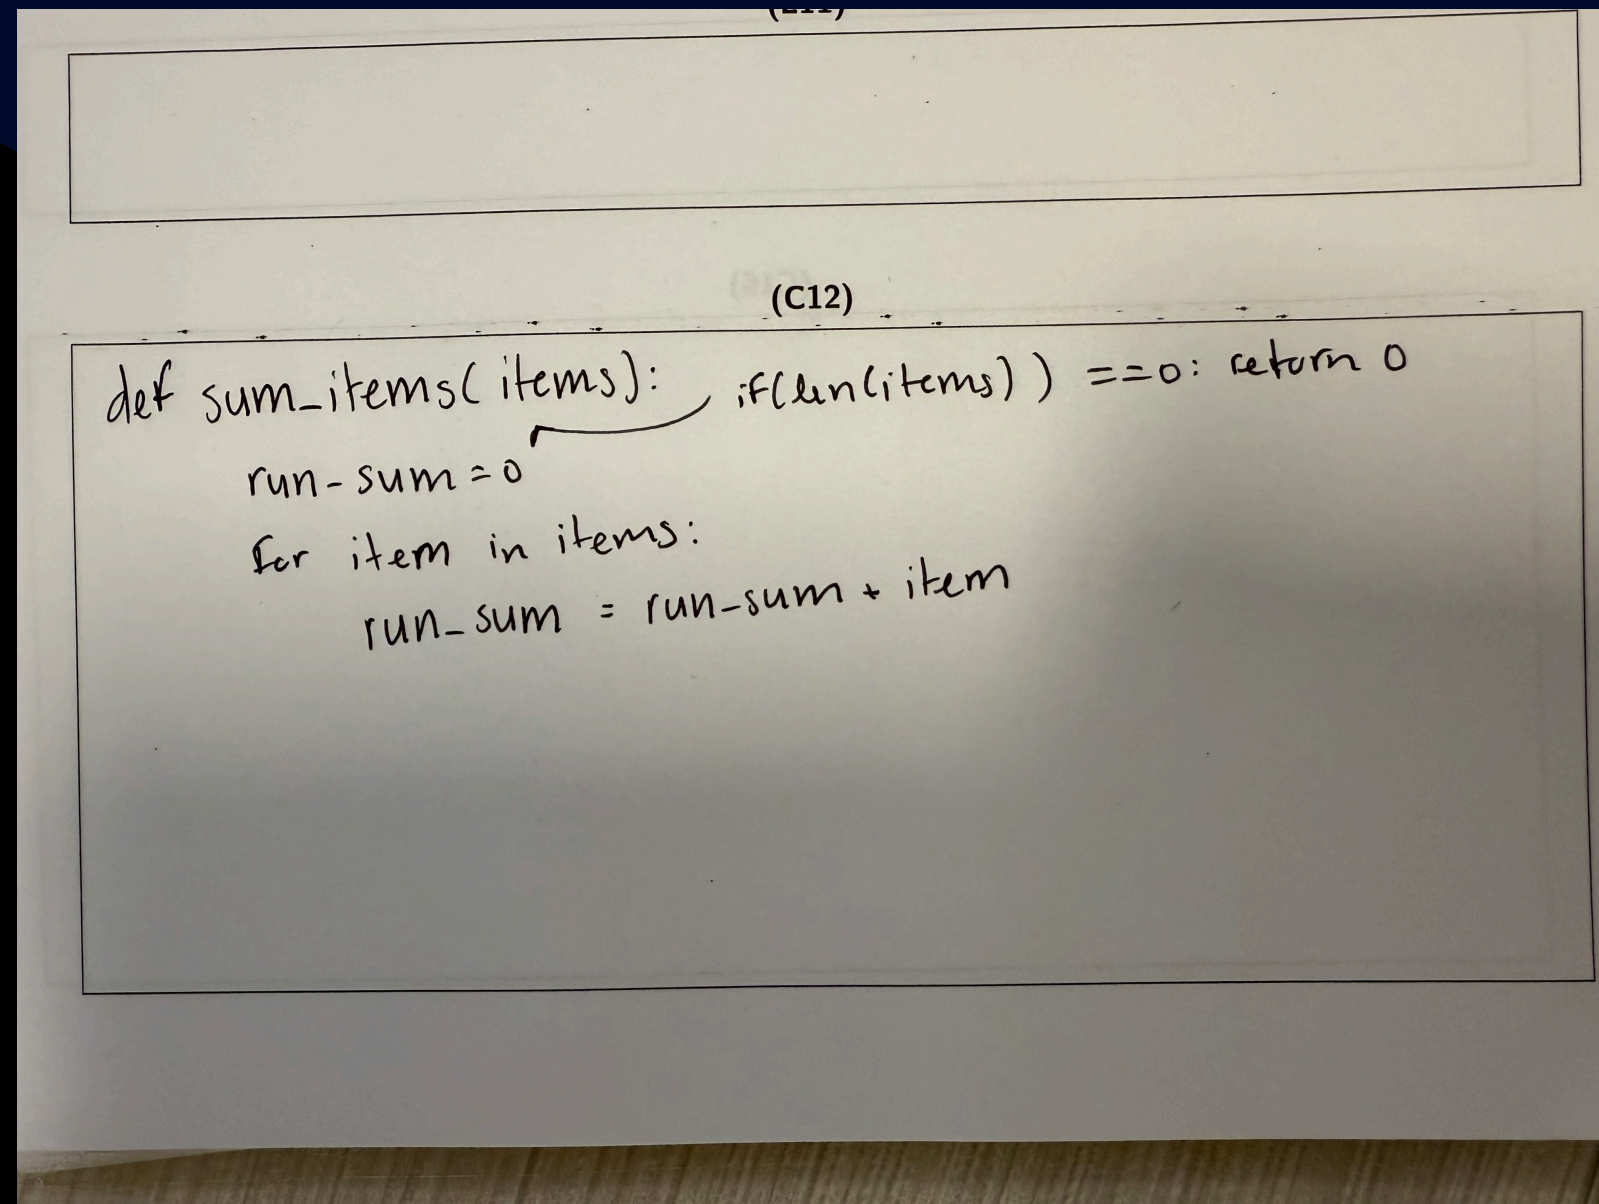 (C12)
def sum_items(items): if(len(items)) ==0: return 0
run-sum=0
for item in items:
run_sum = run-sum + item